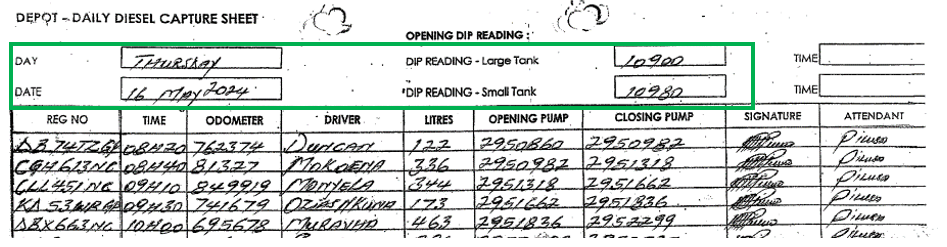 DEPOT - DAILY DIESEL CAPTURE SHEET
OPENING DIP READING :
DAY THURSKAY DIP READING - Large Tank 10900 TIME
DATE 16 May 2024 DIP READING - Small Tank 10980 TIME
REG NO TIME ODOMETER DRIVER LITRES OPENING PUMP CLOSING PUMP SIGNATURE ATTENDANT
08H20 762374 DUNCAN 122 2950860 2950982
CGH613NC 08H40 81327 MOKOENA 336 2950982 2951318
CLL451NC 09H10 849919 MONYELA 344 2951318 2951662
09H30 741679 173 2951662 2951836
10H00 695678 MURAVHA 463 2951836 2952299